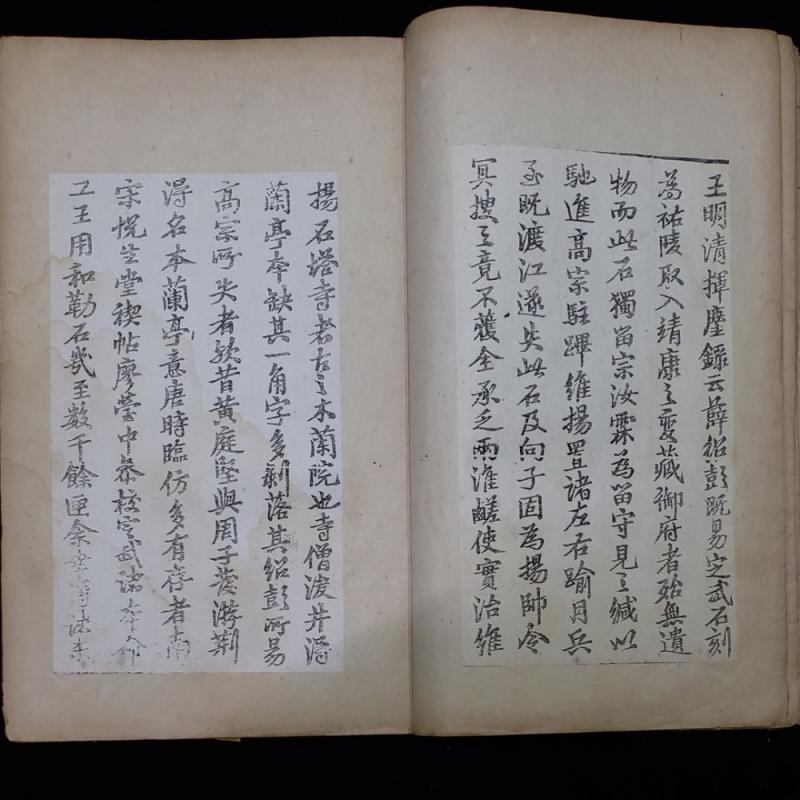 王明清揮麈錄云薛紹彭既易定武石刻
為祐陵取入靖康之變藏御府者殆無遺
物而此石獨留宗汝霖為留守見之緘以
馳進高宗駐蹕維揚置諸左右踰月兵
至既渡江遂失此石及向子固為揚帥令
冥搜之竟不獲全承乏兩淮鹺使實治維
揚石塔寺者古之木蘭院也寺僧浚井得
蘭亭本缺其一角字多剝落其紹彭所易
高宗所失者歟昔黃庭堅與周子發游荊
得名本蘭亭意唐時臨仿多有存者南
宋悅生堂禊帖廖瑩中參校定武諸本命
工王用和勒石幾至數千餘匣余